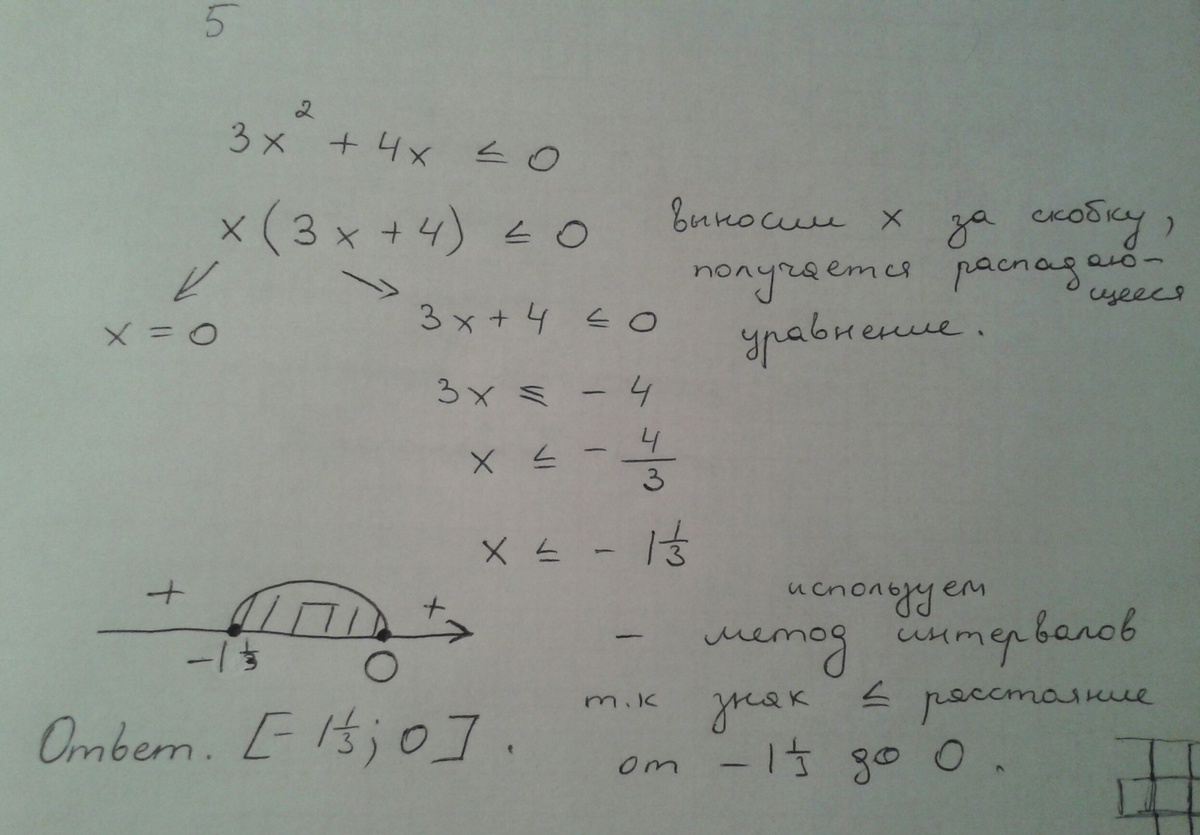 5
3x² + 4x ≤ 0
x(3x + 4) ≤ 0
выносим x за скобку,
получается распадаю-
щееся
уравнение.
x = 0
3x + 4 ≤ 0
3x ≤ - 4
x ≤ - 4/3
x ≤ - 1 1/3
+ +
-1 1/3 0
используем
- метод интервалов
т.к знак ≤ расстояние
от -1 1/3 до 0.
Ответ. [- 1 1/3; 0].